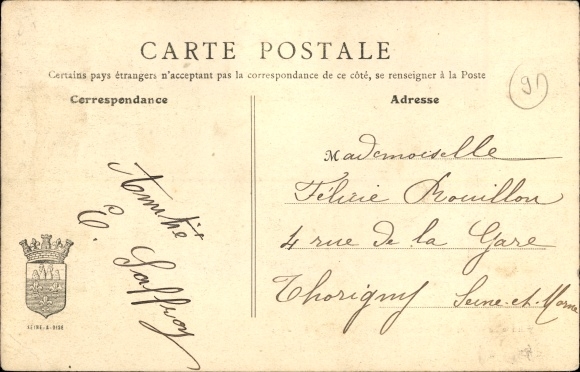 CARTE POSTALE
Certains pays étrangers n'acceptant pas la correspondance de ce côté, se renseigner à la Poste
Correspondance
Adresse
91
Mademoiselle
Félicie Rouillon
4 rue de la Gare
Thorigny Seine-et-Marne
Amitié
E. Saffroy
SEINE-&-OISE